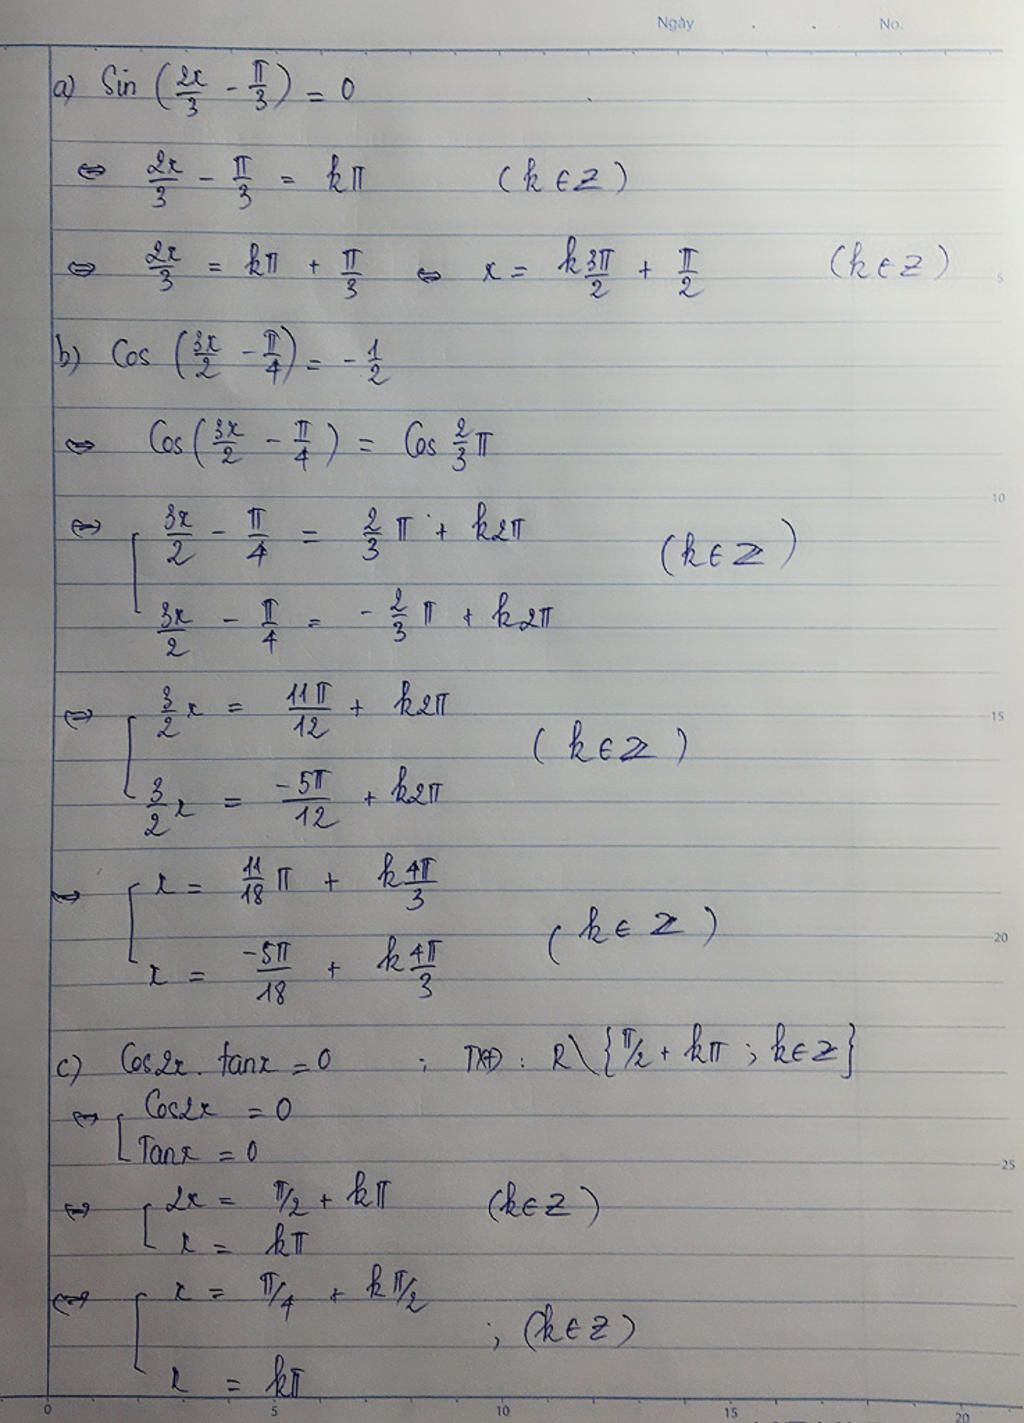 Ngày . . No.
a) Sin (2x/3 - π/3) = 0
⇔ 2x/3 - π/3 = kπ (k ∈ Z)
⇔ 2x/3 = kπ + π/3 ⇔ x = k3π/2 + π/2 (k ∈ Z)
5
b) Cos (3x/2 - π/4) = - 1/2
⇔ Cos(3x/2 - π/4) = Cos 2/3 π
10
⇔ [ 3x/2 - π/4 = 2/3 π + k2π
(k ∈ Z)
3x/2 - π/4 = - 2/3 π + k2π
⇔ [ 3/2 x = 11π/12 + k2π
15
(k ∈ Z)
3/2 x = -5π/12 + k2π
⇔ [ x = 11/18 π + k4π/3
(k ∈ Z)
20
x = -5π/18 + k4π/3
c) Cos2x . tanx = 0 ; TXĐ : R\{π/2 + kπ ; k∈Z}
⇔ [ Cos2x = 0
Tanx = 0
25
⇔ [ 2x = π/2 + kπ (k∈Z)
x = kπ
⇔ [ x = π/4 + kπ/2
; (k∈Z)
x = kπ
0 5 10 15 20